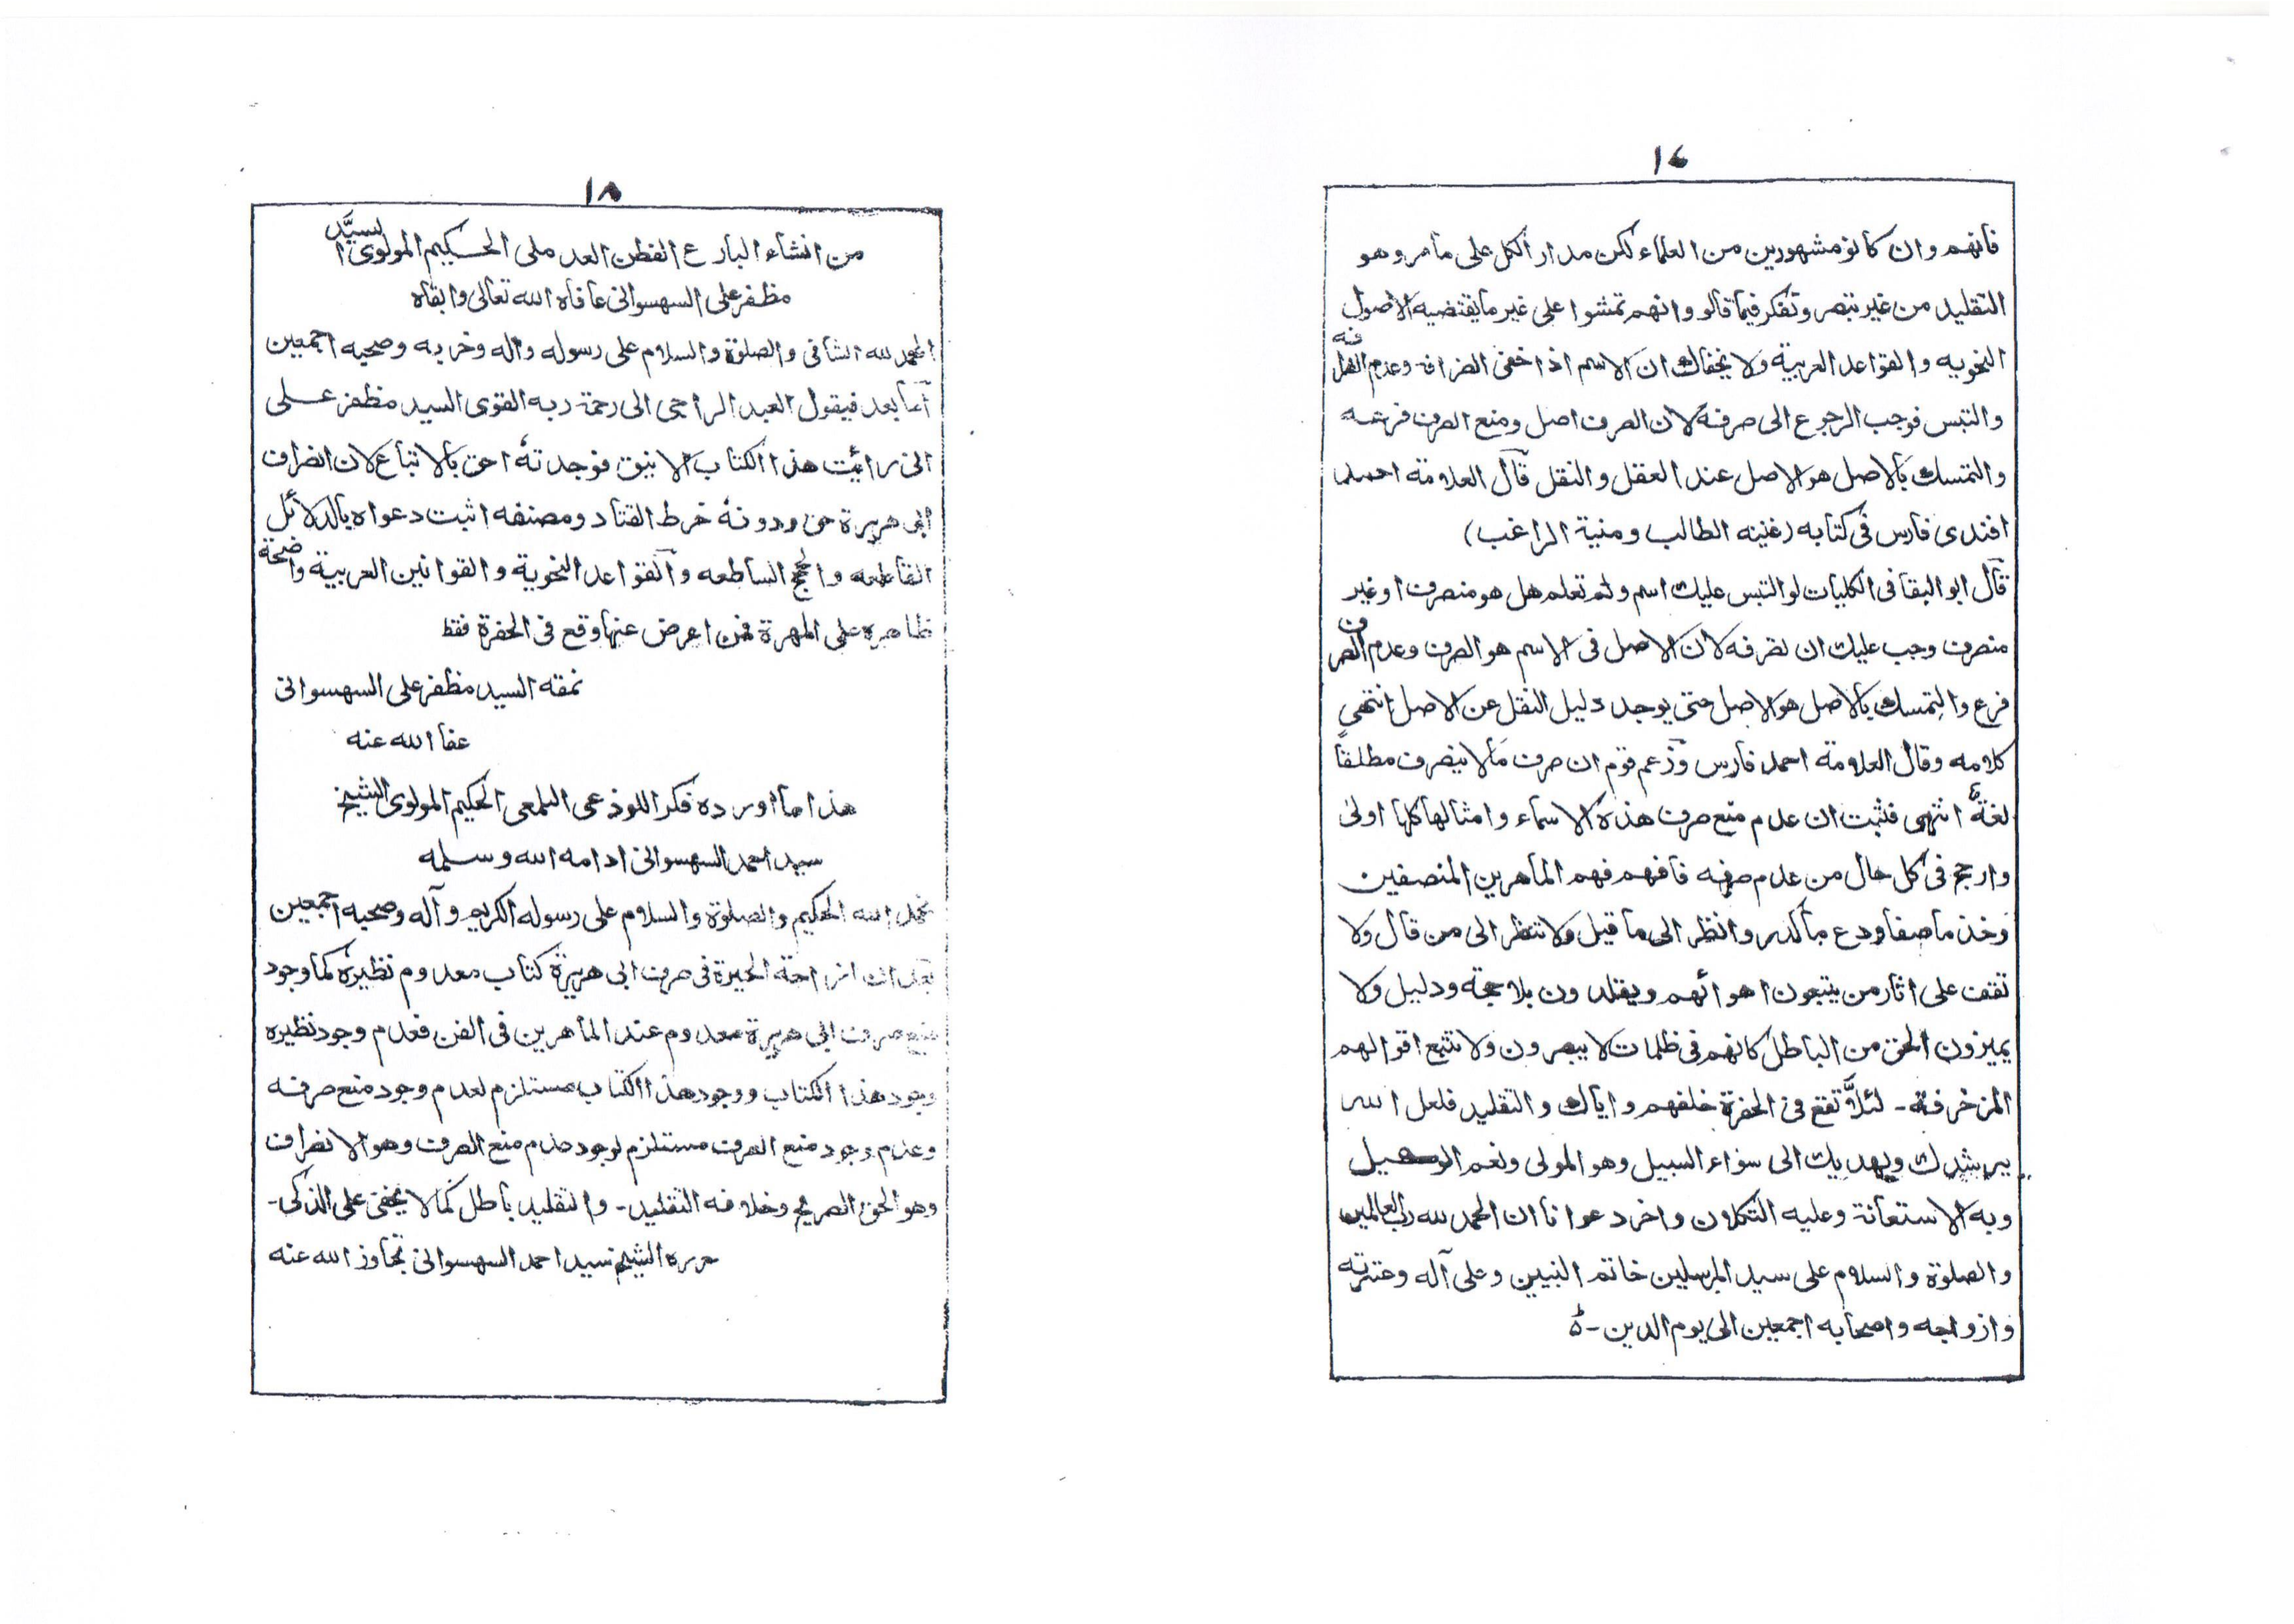 ١٧
فانهم وان كانو مشهورين من العلماء لكن مدار الكل على مامر وهو
التقليد من غير تبصر وتفكر فيما قالو وانهم تمشوا على غير ما يقتضيه الاصول
النحويه والقواعد العربية ولا يخفاك ان الاسم اذا خفى انصرافه وعدم انصرافه
والتبس فوجب الرجوع الى صرفه لان الصرف اصل ومنع الصرف فرعه
والتمسك بالاصل هو الاصل عند العقل والنقل قال العلامة احمد
افندى فارس فى كتابه (غنية الطالب ومنية الراغب)
قال ابو البقا فى الكليات لو التبس عليك اسم ولم تعلم هل هو منصرف او غير
منصرف وجب عليك ان تصرفه لان الاصل فى الاسم هو الصرف وعدم الصرف
فرع والتمسك بالاصل هو الاصل حتى يوجد دليل النقل عن الاصل انتهى
كلامه وقال العلامة احمد فارس وزعم قوم ان صرف مالا ينصرف مطلقاً
لغة انتهى فثبت ان عدم منع صرف هذه الاسماء وامثالها كلها اولى
وارجح فى كل حال من عدم صرفه فافهم فهم الماهرين المنصفين
وخذ ماصفا ودع ماكدر وانظر الى ما قيل ولا تنظر الى من قال ولا
تقف على اثار من يتبعون اهوائهم ويقلدون بلا حجة ودليل ولا
يميزون الحق من الباطل كانهم فى ظلمات لا يبصرون ولا تتبع اقوالهم
المزخرفة - لئلاَّ تقع فى الحفرة خلفهم واياك والتقليد فلعل الله
يرشدك ويهديك الى سواء السبيل وهو المولى ونعم الوكيل
وبه الاستعانة وعليه التكلان واخر دعوانا ان الحمد لله رب العالمين
والصلوة والسلام على سيد المرسلين خاتم النبيين وعلى آله وعترته
وازواجه واصحابه اجمعين الى يوم الدين -
١٨
من انشاء البارع الفطن العد ملى الحكيم المولوى السيَّد
مظفر على السهسوانى عافاه الله تعالى وابقاه
الحمد لله الشافى والصلوة والسلام على رسوله واله وحزبه وصحبه اجمعين
اما بعد فيقول العبد الراجى الى رحمة ربه القوى السيد مظفر على
انى رائيت هذا الكتاب الانيق فوجدته احق بالاتباع لان انصراف
ابى هريرة حق ودونه خرط القتاد ومصنفه اثبت دعواه بالدلائل
القاطعه والحجج الساطعه والقواعد النحوية والقوانين العربية واضحة
ظاهره على المهرة فمن اعرض عنها وقع فى الحفرة فقط
نمقه السيد مظفر على السهسوانى
عفا الله عنه
هذا ما اورده فكر اللوذعى اليلمعى الحكيم المولوى الشيخ
سيد احمد السهسوانى ادامه الله وسلمه
نحمد الله الحكيم والصلوة والسلام على رسوله الكريم وآله وصحبه اجمعين
بعد ان ازاحة الحيرة فى صرف ابى هريرة كتاب معدوم نظيره كما وجود
منع صرف ابى هريرة معدوم عند الماهرين فى الفن فعدم وجود نظيره
وجود هذا الكتاب ووجود هذا الكتاب مستلزم لعدم وجود منع صرفه
وعدم وجود منع الصرف مستلزم لوجود عدم منع الصرف وهو الانصراف
وهو الحق الصريح وخلافه التقليد - والتقليد باطل كما لا يخفى على الذكى -
حرره الشيخ سيد احمد السهسوانى تجاوز الله عنه